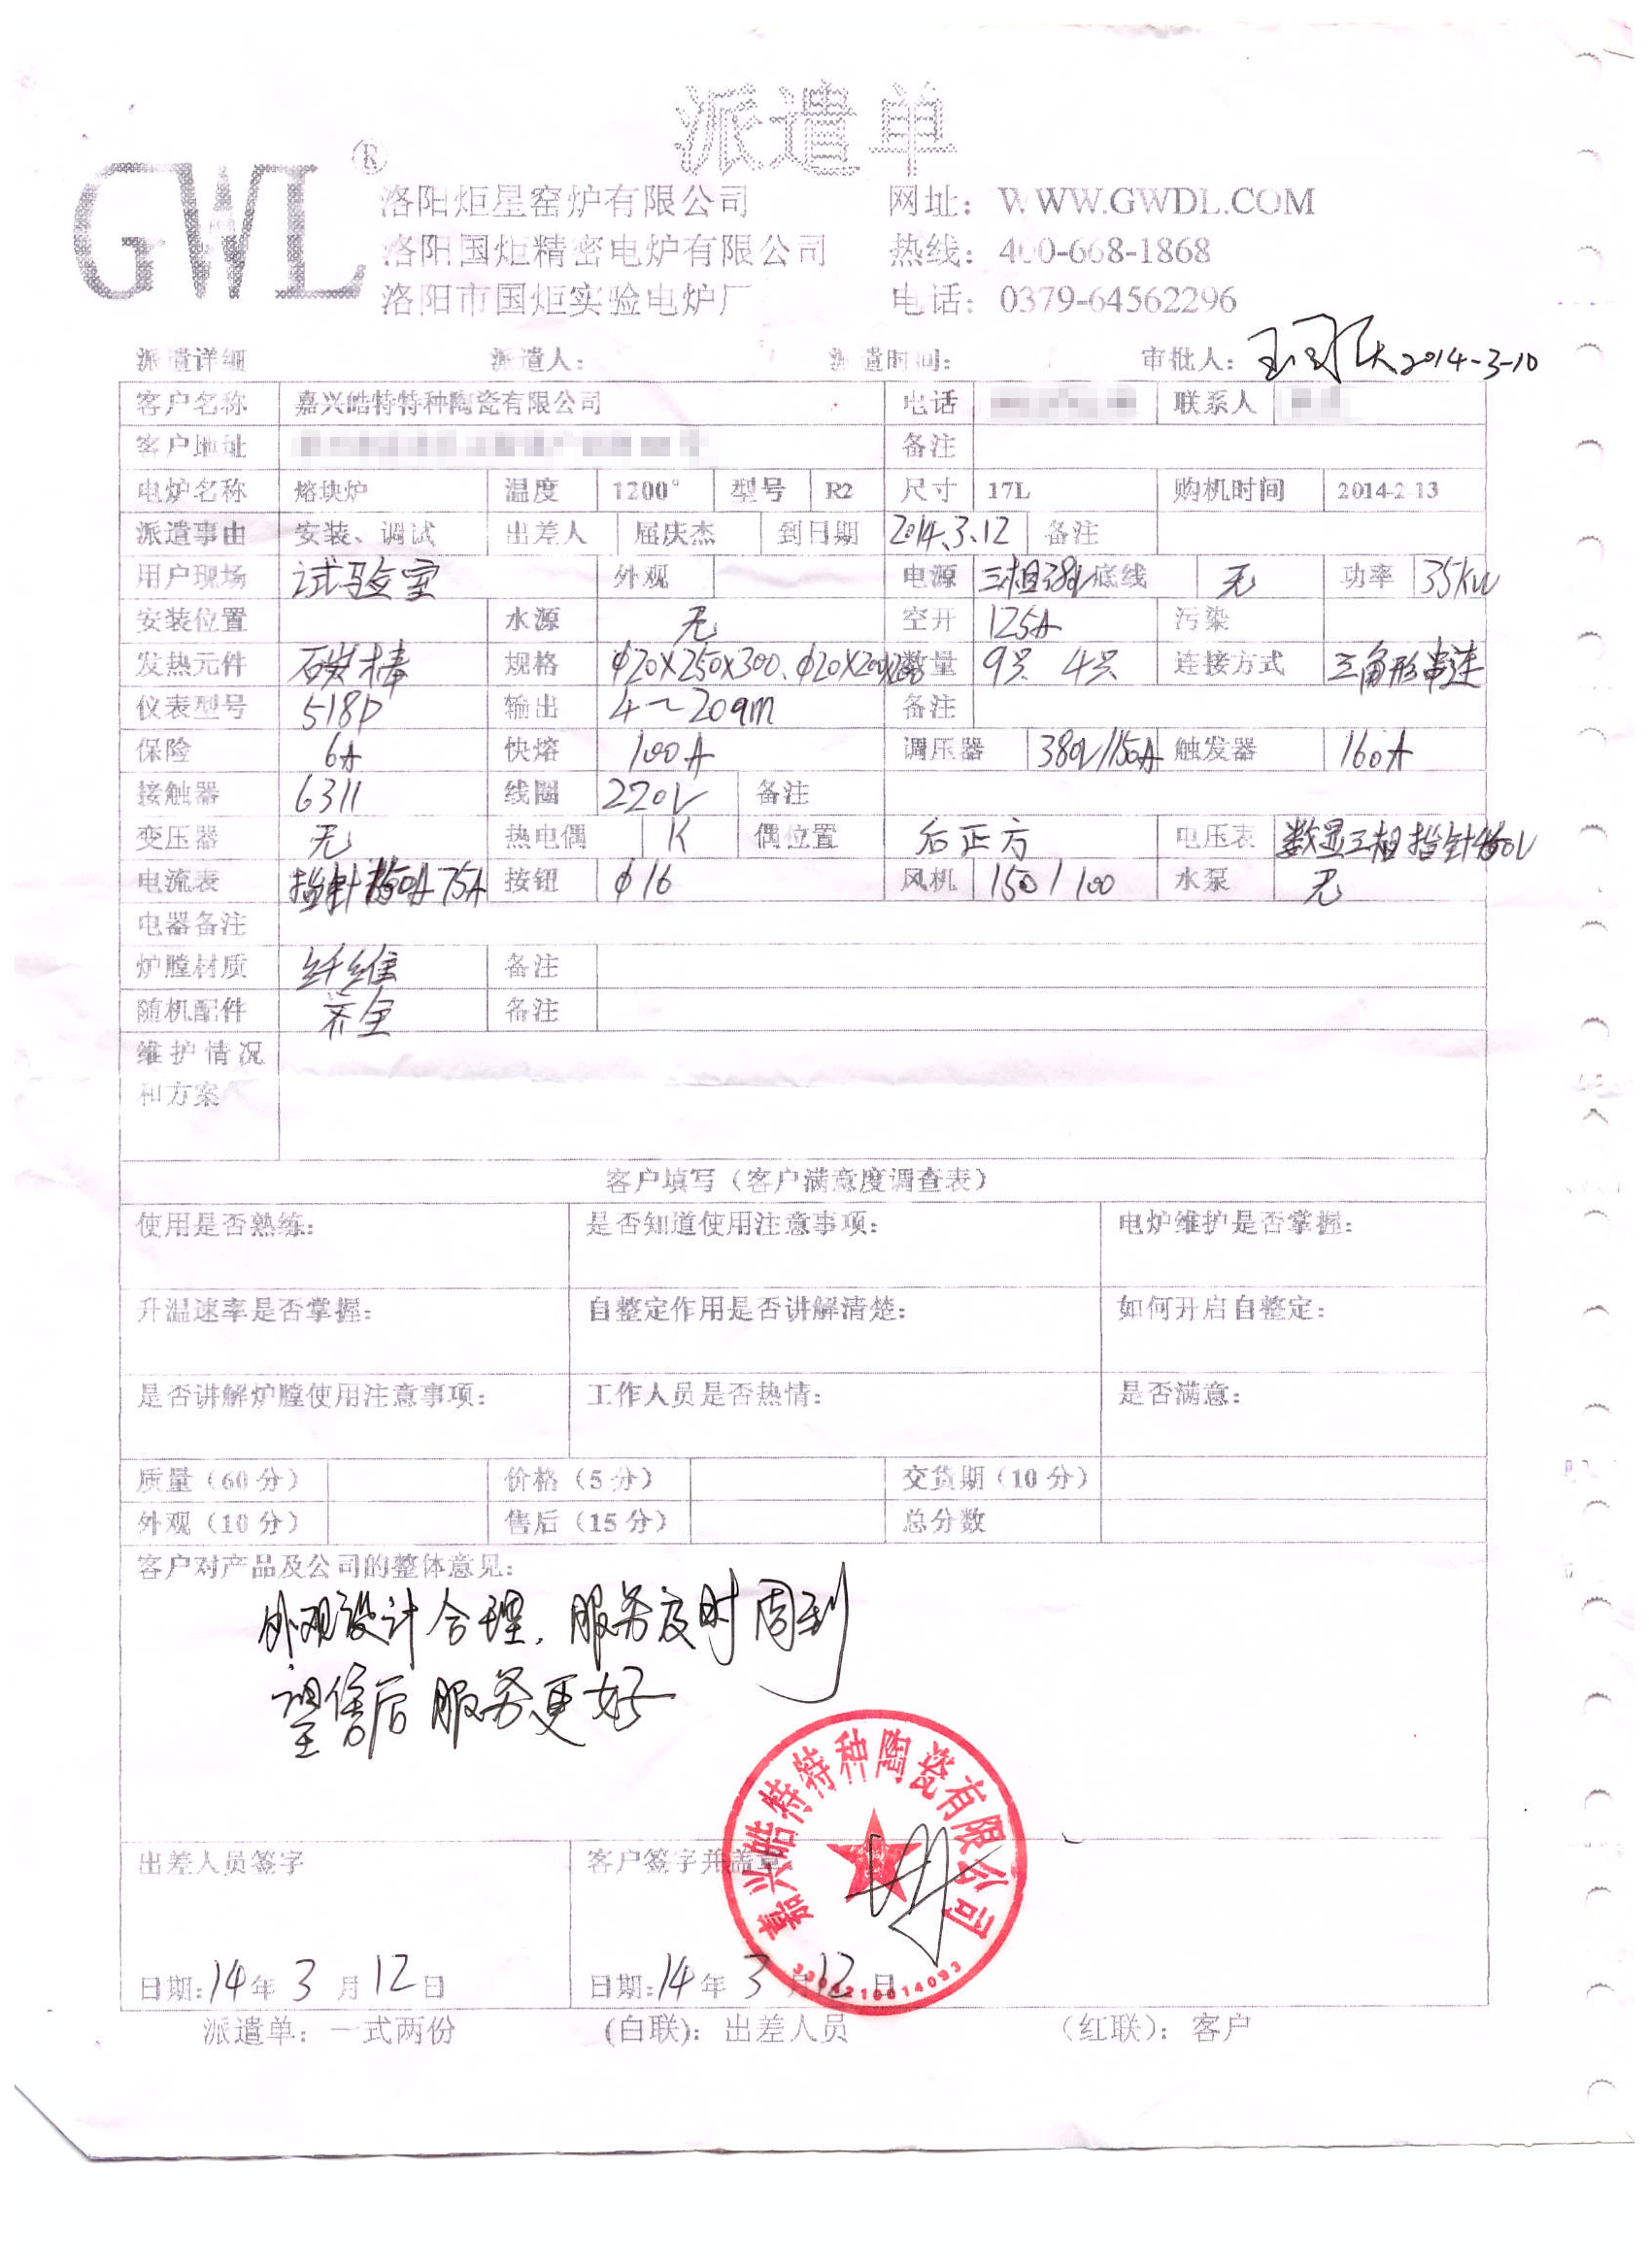 派遣单
GWL®
洛阳炬星窑炉有限公司 网址：WWW.GWDL.COM
洛阳国炬精密电炉有限公司 热线：400-668-1868
洛阳市国炬实验电炉厂 电话：0379-64562296
派遣详细 派遣人： 派遣时间： 审批人： 2014-3-10
客户名称 嘉兴皓特特种陶瓷有限公司 电话 联系人
客户地址 备注
电炉名称 熔块炉 温度 1200° 型号 R2 尺寸 17L 购机时间 2014-2-13
派遣事由 安装、调试 出差人 屈庆杰 到日期 2014.3.12 备注
用户现场 试验室 外观 电源 三相380V 底线 无 功率 35KW
安装位置 水源 无 空开 125A 污染
发热元件 硅碳棒 规格 φ20X250X300、φ20X200X200 数量 9只 4只 连接方式 三角形串连
仪表型号 518P 输出 4～20am 备注
保险 6A 快熔 100A 调压器 380V/150A 触发器 160A
接触器 6311 线圈 220V 备注
变压器 无 热电偶 K 偶位置 后正方 电压表 数显三相 指针
电流表 指针 75A 按钮 φ16 风机 150/100 水泵 无
电器备注
炉膛材质 纤维 备注
随机配件 齐全 备注
维护情况
和方案
客户填写（客户满意度调查表）
使用是否熟练： 是否知道使用注意事项： 电炉维护是否掌握：
升温速率是否掌握： 自整定作用是否讲解清楚： 如何开启自整定：
是否讲解炉膛使用注意事项： 工作人员是否热情： 是否满意：
质量（60分） 价格（5分） 交货期（10分）
外观（10分） 售后（15分） 总分数
客户对产品及公司的整体意见：
外观设计合理，服务及时周到
望售后服务更好
嘉兴皓特特种陶瓷有限公司
出差人员签字 客户签字并盖章
3304210014093
日期：14年3月12日 日期：14年3月12日
派遣单：一式两份 （白联）：出差人员 （红联）：客户